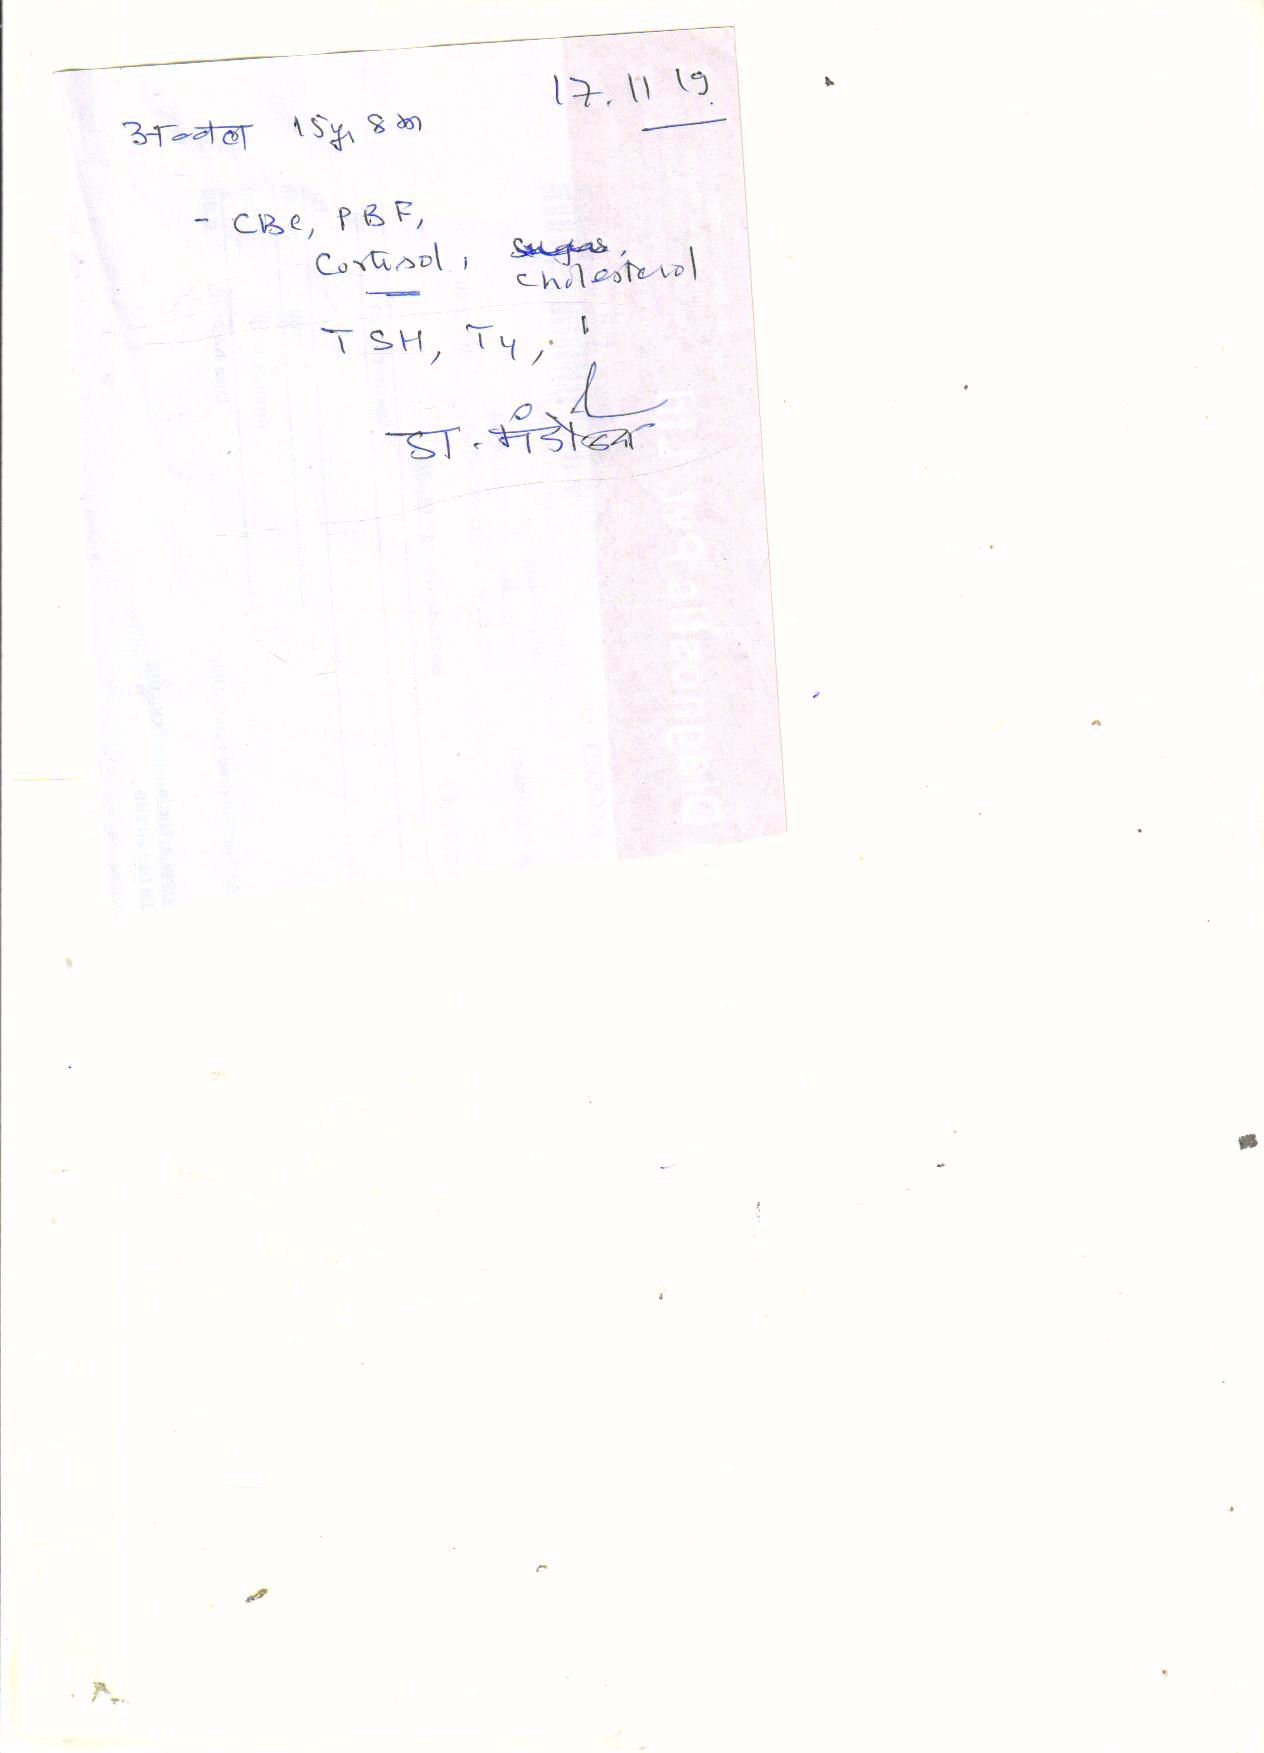 17.11 19
15y, 8m
- CBC, PBF,
Cortisol, Sugar,
cholesterol
TSH, T4,
डा.